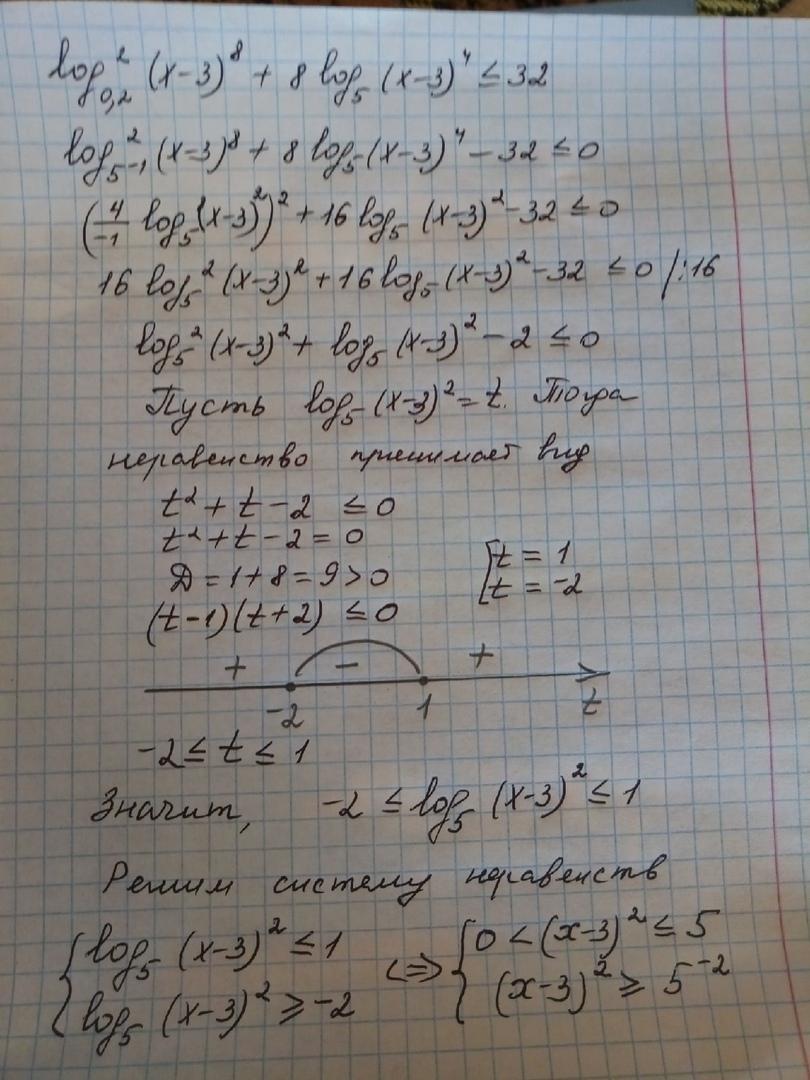 log²₀,₂ (x-3)⁸ + 8 log₅ (x-3)⁴ ≤ 32
log²₅₋₁ (x-3)⁸ + 8 log₅ (x-3)⁴ - 32 ≤ 0
(4/-1 log₅ (x-3)²)² + 16 log₅ (x-3)² - 32 ≤ 0
16 log₅² (x-3)² + 16 log₅ (x-3)² - 32 ≤ 0 /:16
log₅² (x-3)² + log₅ (x-3)² - 2 ≤ 0
Пусть log₅ (x-3)² = t. Тогда
неравенство принимает вид
t² + t - 2 ≤ 0
t² + t - 2 = 0
Д = 1 + 8 = 9 > 0
[t = 1
[t = -2
(t-1)(t+2) ≤ 0
+ - +
-2 1 t
-2 ≤ t ≤ 1
Значит, -2 ≤ log₅ (x-3)² ≤ 1
Решим систему неравенств
{ log₅ (x-3)² ≤ 1 <=> { 0 < (x-3)² ≤ 5
log₅ (x-3)² ≥ -2 (x-3)² ≥ 5⁻²